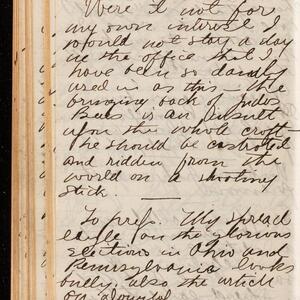 Were it not for
my own interest I
would not stay a day
in the office that I
have been so damdly
used in as this — the
bringing back of
Bees is an insult
upon the whole craft —
he should be castrated
and ridden from the
world on a shooting
stick.
To prefs. My spread
eagle on the glorious
elections in Ohio and
Pennsylvania looks
bully, also the article
on